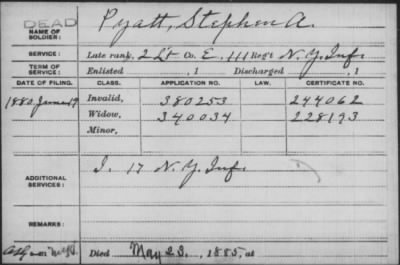 DEAD
NAME OF SOLDIER: Pyatt, Stephen A.
SERVICE: Late rank, 2 Lt Co. E, 111 Reg't N.Y. Inf.
TERM OF SERVICE: Enlisted , 1 Discharged , 1
DATE OF FILING. CLASS. APPLICATION NO. LAW. CERTIFICATE NO.
1880 June 19 Invalid, 380253 244062
Widow, 340034 228193
Minor,
ADDITIONAL SERVICES: I. 17 N.Y. Inf.
REMARKS:
Died May 23, 1885, at